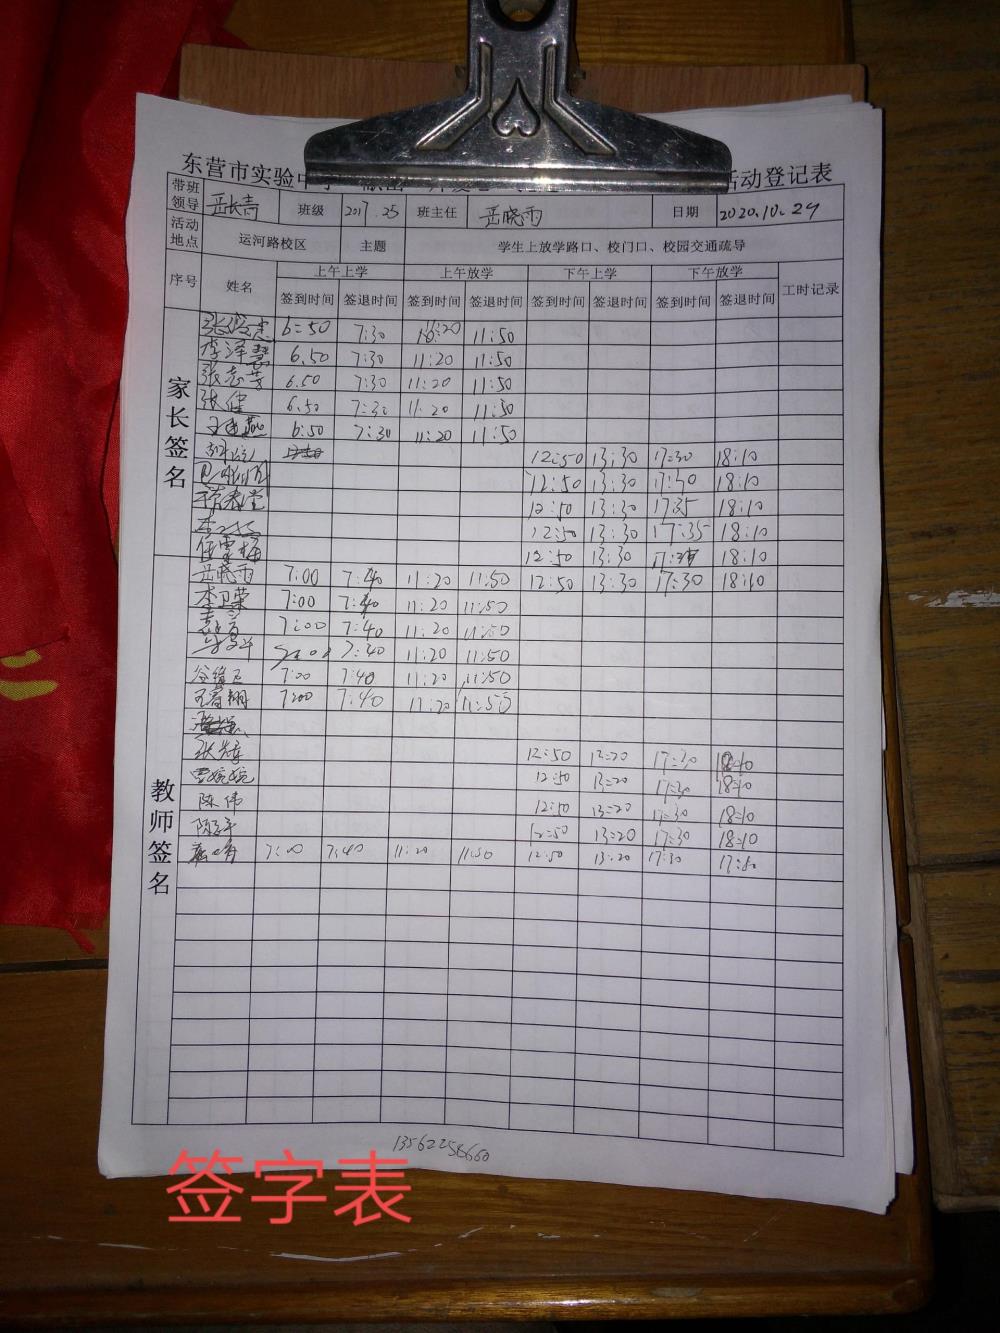 东营市实验中 活动登记表
带班领导 岳长青 班级 2017.25 班主任 岳晓雨 日期 2020.10.29
活动地点 运河路校区 主题 学生上放学路口、校门口、校园交通疏导
序号 姓名 上午上学 上午放学 下午上学 下午放学 工时记录
签到时间 签退时间 签到时间 签退时间 签到时间 签退时间 签到时间 签退时间
家长签名
6:50 7:30 11:20 11:50
李泽慧 6.50 7:30 11:20 11:50
张志芳 6.50 7:30 11:20 11:50
张健 6.50 7:30 11:20 11:50
6:50 7:30 11:20 11:50
12:50 13:30 17:30 18:10
12:50 13:30 18:10
12:50 13:30 17:35 18:10
12:50 13:30 17:35 18:10
任雪梅 12:50 13:30 18:10
教师签名
岳晓雨 7:00 7:40 11:20 11:50 12:50 13:30 17:30 18:10
李卫荣 7:00 7:40 11:20 11:50
7:00 7:40 11:20 11:50
7:40 11:20 11:50
7:00 7:40 11:20 11:50
7:00 7:40 11:20 11:50
12:50 13:20 17:30 18:10
12:50 13:20 17:30 18:10
陈伟 12:50 13:20 17:30 18:10
12:50 13:20 17:30 18:10
7:00 7:40 11:20 11:50 12:50 13:20 17:30
13562258660
签字表